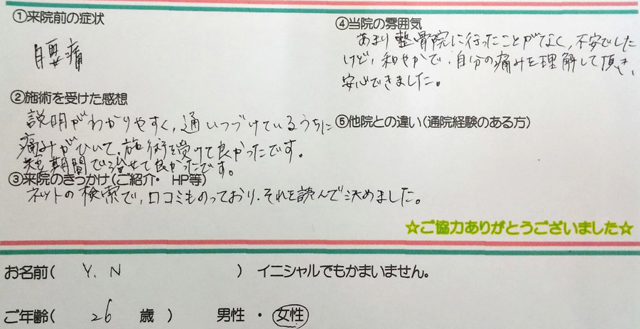 ①来院前の症状
腰痛
②施術を受けた感想
説明がわかりやすく、通いつづけているうちに
痛みがひいて、施術を受けて良かったです。
短期間で治せて良かったです。
③来院のきっかけ(ご紹介・ HP等)
ネットの検索で、口コミものっており、それを読んで決めました。
④当院の雰囲気
あまり整骨院に行ったことがなく、不安でした
けど、和やかで、自分の痛みを理解して頂き、
安心できました。
⑤他院との違い(通院経験のある方)
☆ご協力ありがとうございました☆
お名前( Y.N ) イニシャルでもかまいません。
ご年齢( 26 歳 ) 男性 ・ 女性